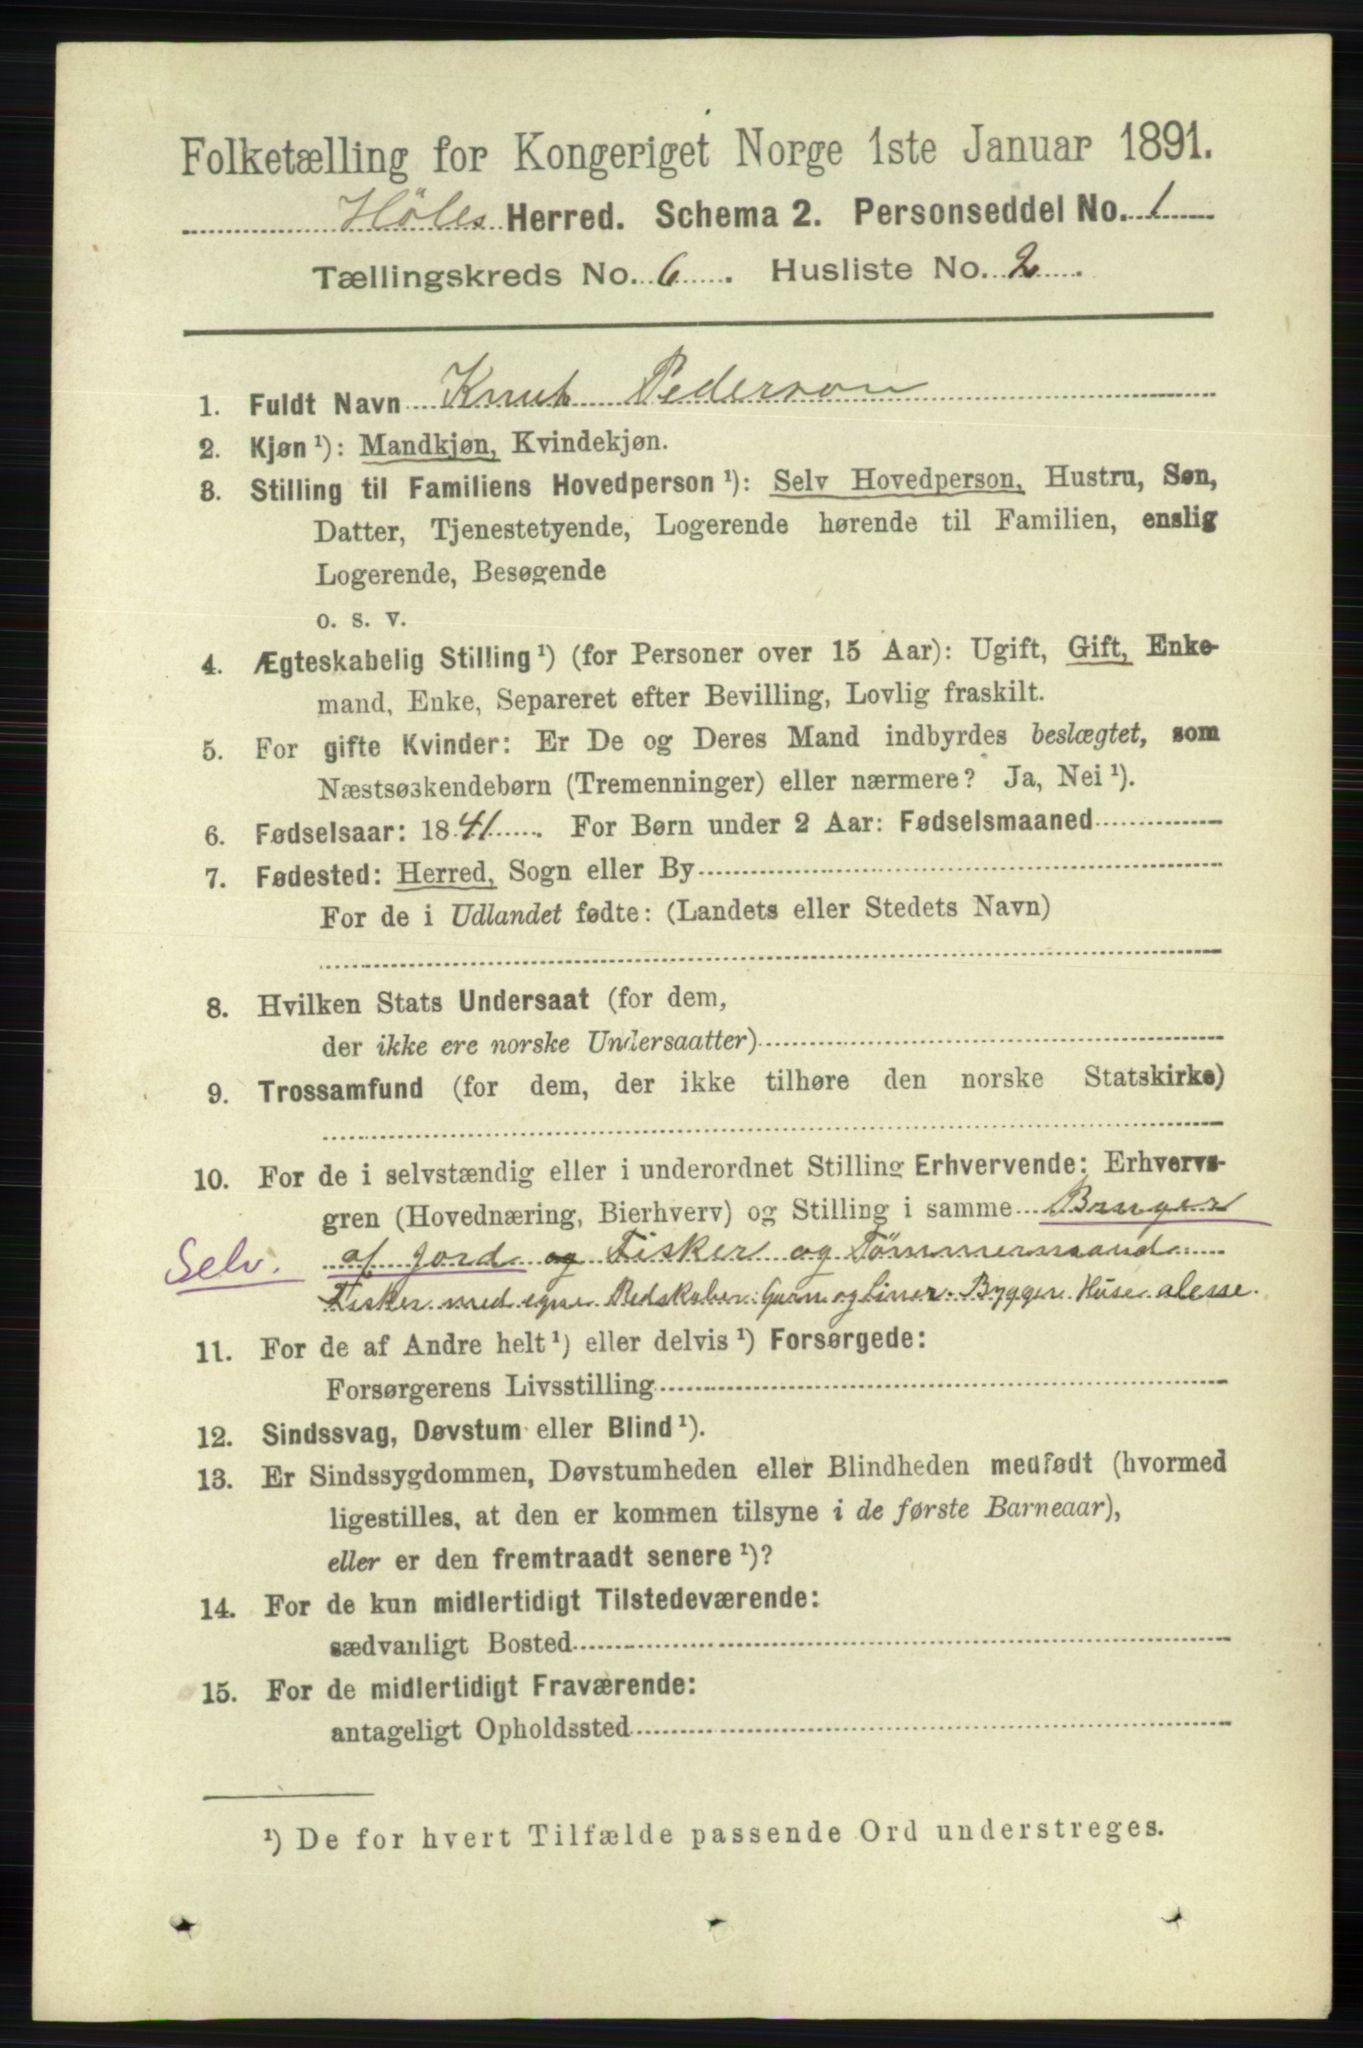 Folketælling for Kongeriget Norge 1ste Januar 1891.
Höles Herred. Schema 2. Personseddel No. 1
Tællingskreds No. 6. Husliste No. 2.
1. Fuldt Navn Knut Pederson
2. Kjøn ¹): Mandkjøn, Kvindekjøn.
3. Stilling til Familiens Hovedperson ¹): Selv Hovedperson, Hustru, Søn,
Datter, Tjenestetyende, Logerende hørende til Familien, enslig
Logerende, Besøgende
o. s. v.
4. Ægteskabelig Stilling ¹) (for Personer over 15 Aar): Ugift, Gift, Enke-
mand, Enke, Separeret efter Bevilling, Lovlig fraskilt.
5. For gifte Kvinder: Er De og Deres Mand indbyrdes beslægtet, som
Næstsøskendebørn (Tremenninger) eller nærmere? Ja, Nei ¹).
6. Fødselsaar: 1841. For Børn under 2 Aar: Fødselsmaaned
7. Fødested: Herred, Sogn eller By
For de i Udlandet fødte: (Landets eller Stedets Navn)
8. Hvilken Stats Undersaat (for dem,
der ikke ere norske Undersaatter)
9. Trossamfund (for dem, der ikke tilhøre den norske Statskirke)
10. For de i selvstændig eller i underordnet Stilling Erhvervende: Erhvervs-
gren (Hovednæring, Bierhverv) og Stilling i samme Bruger
Selv. af jord og Fisker og Tömmermand
Fisker med egne Redskaber: Garn og Liner. Bygger Huse
11. For de af Andre helt ¹) eller delvis ¹) Forsørgede:
Forsørgerens Livsstilling
12. Sindssvag, Døvstum eller Blind ¹).
13. Er Sindssygdommen, Døvstumheden eller Blindheden medfødt (hvormed
ligestilles, at den er kommen tilsyne i de første Barneaar),
eller er den fremtraadt senere ¹)?
14. For de kun midlertidigt Tilstedeværende:
sædvanligt Bosted
15. For de midlertidigt Fraværende:
antageligt Opholdssted
¹) De for hvert Tilfælde passende Ord understreges.